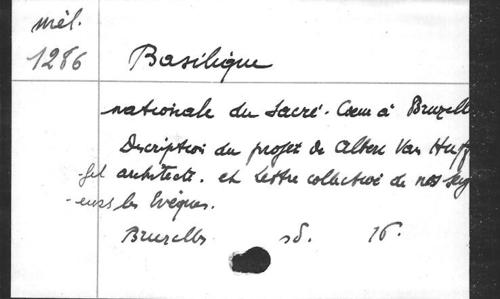 mél.
1286
Basilique
nationale du Sacré-Coeur à Bruxelle
Description du projet de Albert Van Huff
-fel architecte. et lettre collective de nos seig
-eurs les Evêques.
Bruxelles sd. 16.